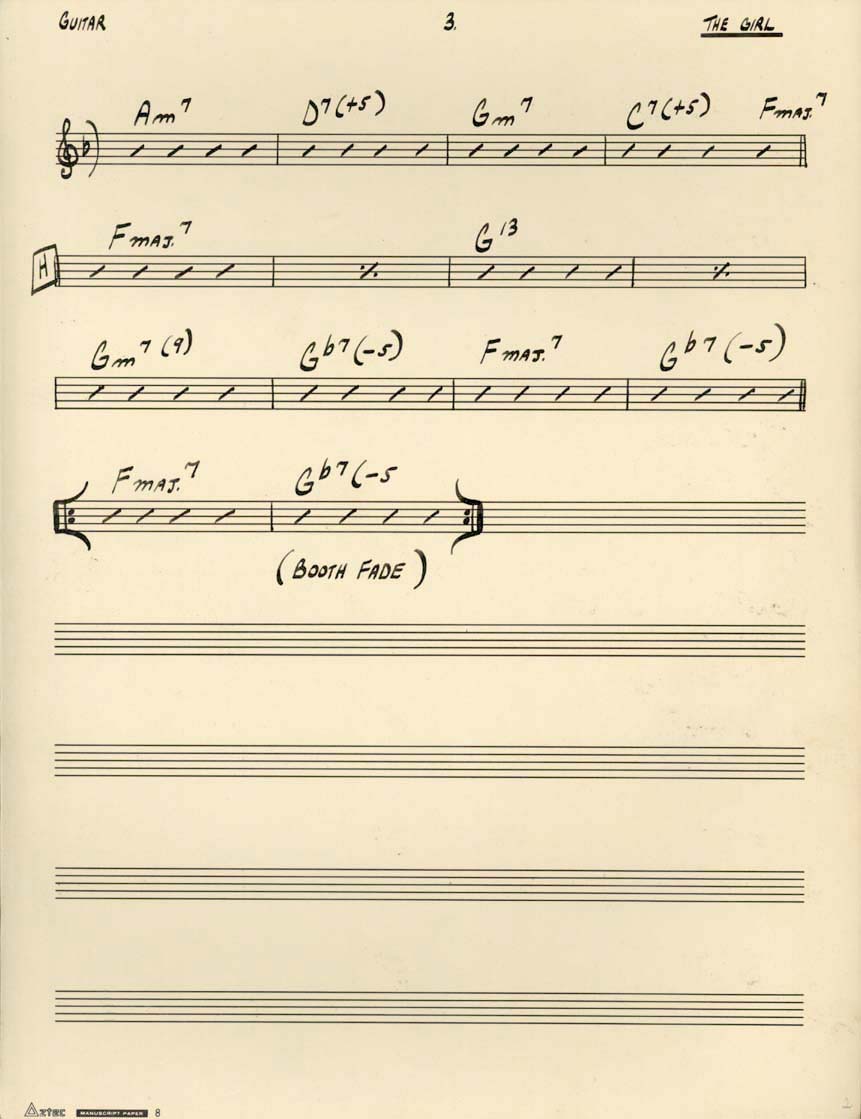 GUITAR 3. THE GIRL
Am7 D7(+5) Gm7 C7(+5) FMAJ.7
H FMAJ.7 G13
Gm7(9) Gb7(-5) FMAJ.7 Gb7(-5)
FMAJ.7 Gb7(-5
(BOOTH FADE)
Aztec MANUSCRIPT PAPER 8